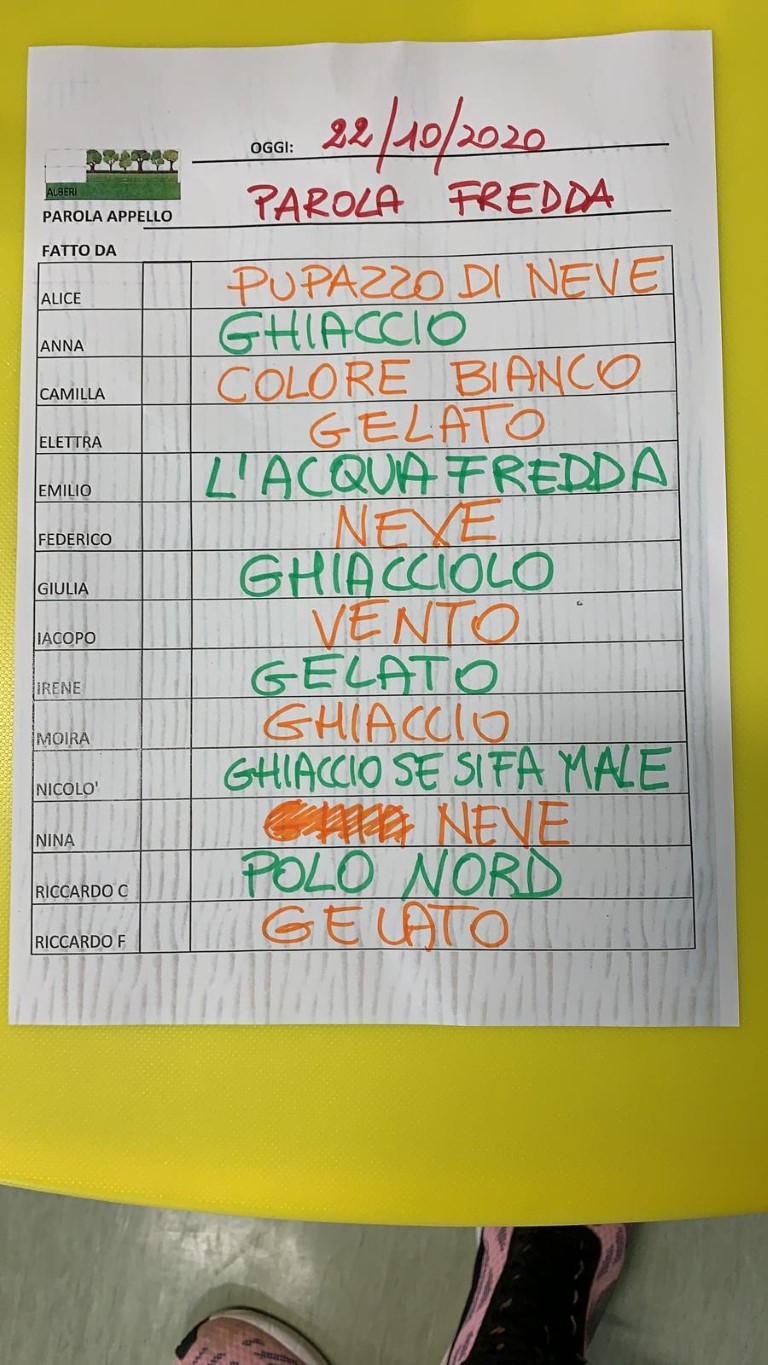 OGGI: 22/10/2020
ALBERI
PAROLA APPELLO PAROLA FREDDA
FATTO DA
ALICE PUPAZZO DI NEVE
ANNA GHIACCIO
CAMILLA COLORE BIANCO
ELETTRA GELATO
EMILIO L'ACQUA FREDDA
FEDERICO NEVE
GIULIA GHIACCIOLO
IACOPO VENTO
IRENE GELATO
MOIRA GHIACCIO
NICOLO' GHIACCIO SE SI FA MALE
NINA NEVE
RICCARDO C POLO NORD
RICCARDO F GELATO